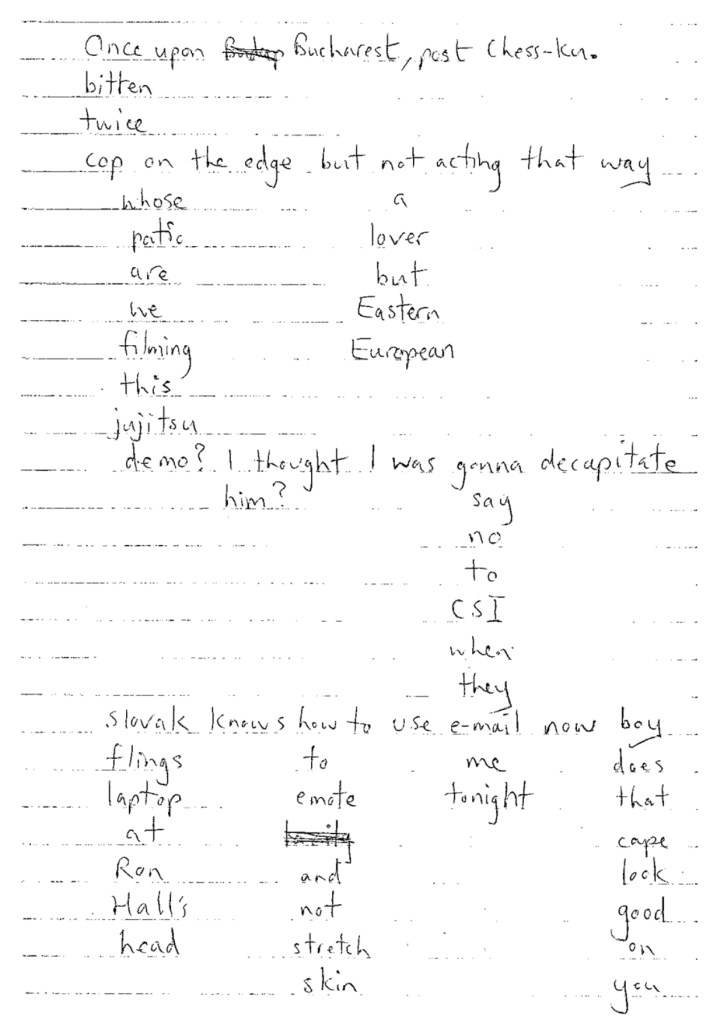 Once upon Bucharest, post Chess-Ku.
bitten
twice
cop on the edge but not acting that way
whose a
patio lover
are but
we Eastern
filming European
this
jujitsu
demo? I thought I was gonna decapitate
him? say
no
to
CSI
when
they
Slovak knows how to use e-mail now boy
flings to me does
laptop emote tonight that
at cape
Ron and look
Hall's not good
head stretch on
skin you